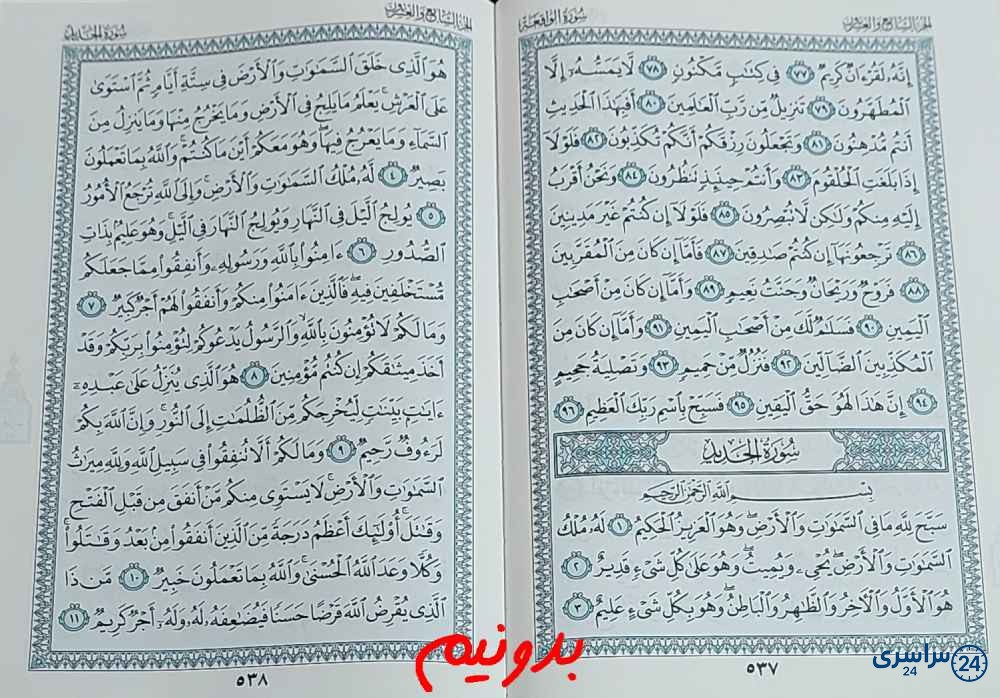 الجزء السابع والعشرون
سورة الواقعة
إِنَّهُۥ لَقُرْءَانٌ كَرِيمٌ ٧٧ فِى كِتَٰبٍ مَّكْنُونٍ ٧٨ لَّا يَمَسُّهُۥٓ إِلَّا
ٱلْمُطَهَّرُونَ ٧٩ تَنزِيلٌ مِّن رَّبِّ ٱلْعَٰلَمِينَ ٨٠ أَفَبِهَٰذَا ٱلْحَدِيثِ
أَنتُم مُّدْهِنُونَ ٨١ وَتَجْعَلُونَ رِزْقَكُمْ أَنَّكُمْ تُكَذِّبُونَ ٨٢ فَلَوْلَآ
إِذَا بَلَغَتِ ٱلْحُلْقُومَ ٨٣ وَأَنتُمْ حِينَئِذٍ تَنظُرُونَ ٨٤ وَنَحْنُ أَقْرَبُ
إِلَيْهِ مِنكُمْ وَلَٰكِن لَّا تُبْصِرُونَ ٨٥ فَلَوْلَآ إِن كُنتُمْ غَيْرَ مَدِينِينَ
٨٦ تَرْجِعُونَهَآ إِن كُنتُمْ صَٰدِقِينَ ٨٧ فَأَمَّآ إِن كَانَ مِنَ ٱلْمُقَرَّبِينَ
٨٨ فَرَوْحٌ وَرَيْحَانٌ وَجَنَّتُ نَعِيمٍ ٨٩ وَأَمَّآ إِن كَانَ مِنْ أَصْحَٰبِ
ٱلْيَمِينِ ٩٠ فَسَلَٰمٌ لَّكَ مِنْ أَصْحَٰبِ ٱلْيَمِينِ ٩١ وَأَمَّآ إِن كَانَ مِنَ
ٱلْمُكَذِّبِينَ ٱلضَّآلِّينَ ٩٢ فَنُزُلٌ مِّنْ حَمِيمٍ ٩٣ وَتَصْلِيَةُ جَحِيمٍ
٩٤ إِنَّ هَٰذَا لَهُوَ حَقُّ ٱلْيَقِينِ ٩٥ فَسَبِّحْ بِٱسْمِ رَبِّكَ ٱلْعَظِيمِ ٩٦
سُورَةُ الحَدِيدِ
بِسْمِ ٱللَّهِ ٱلرَّحْمَٰنِ ٱلرَّحِيمِ
سَبَّحَ لِلَّهِ مَا فِى ٱلسَّمَٰوَٰتِ وَٱلْأَرْضِ وَهُوَ ٱلْعَزِيزُ ٱلْحَكِيمُ ١ لَهُۥ مُلْكُ
ٱلسَّمَٰوَٰتِ وَٱلْأَرْضِ يُحْىِۦ وَيُمِيتُ وَهُوَ عَلَىٰ كُلِّ شَىْءٍ قَدِيرٌ ٢
هُوَ ٱلْأَوَّلُ وَٱلْءَاخِرُ وَٱلظَّٰهِرُ وَٱلْبَاطِنُ وَهُوَ بِكُلِّ شَىْءٍ عَلِيمٌ ٣
٥٣٧
الجزء السابع والعشرون
سورة الحديد
هُوَ ٱلَّذِى خَلَقَ ٱلسَّمَٰوَٰتِ وَٱلْأَرْضَ فِى سِتَّةِ أَيَّامٍ ثُمَّ ٱسْتَوَىٰ
عَلَى ٱلْعَرْشِ يَعْلَمُ مَا يَلِجُ فِى ٱلْأَرْضِ وَمَا يَخْرُجُ مِنْهَا وَمَا يَنزِلُ مِنَ
ٱلسَّمَآءِ وَمَا يَعْرُجُ فِيهَا وَهُوَ مَعَكُمْ أَيْنَ مَا كُنتُمْ وَٱللَّهُ بِمَا تَعْمَلُونَ
بَصِيرٌ ٤ لَّهُۥ مُلْكُ ٱلسَّمَٰوَٰتِ وَٱلْأَرْضِ وَإِلَى ٱللَّهِ تُرْجَعُ ٱلْأُمُورُ
٥ يُولِجُ ٱلَّيْلَ فِى ٱلنَّهَارِ وَيُولِجُ ٱلنَّهَارَ فِى ٱلَّيْلِ وَهُوَ عَلِيمٌۢ بِذَاتِ
ٱلصُّدُورِ ٦ ءَامِنُوا۟ بِٱللَّهِ وَرَسُولِهِۦ وَأَنفِقُوا۟ مِمَّا جَعَلَكُم
مُّسْتَخْلَفِينَ فِيهِ فَٱلَّذِينَ ءَامَنُوا۟ مِنكُمْ وَأَنفَقُوا۟ لَهُمْ أَجْرٌ كَبِيرٌ ٧
وَمَا لَكُمْ لَا تُؤْمِنُونَ بِٱللَّهِ وَٱلرَّسُولُ يَدْعُوكُمْ لِتُؤْمِنُوا۟ بِرَبِّكُمْ وَقَدْ
أَخَذَ مِيثَٰقَكُمْ إِن كُنتُم مُّؤْمِنِينَ ٨ هُوَ ٱلَّذِى يُنَزِّلُ عَلَىٰ عَبْدِهِۦٓ
ءَايَٰتٍۭ بَيِّنَٰتٍ لِّيُخْرِجَكُم مِّنَ ٱلظُّلُمَٰتِ إِلَى ٱلنُّورِ وَإِنَّ ٱللَّهَ بِكُمْ
لَرَءُوفٌ رَّحِيمٌ ٩ وَمَا لَكُمْ أَلَّا تُنفِقُوا۟ فِى سَبِيلِ ٱللَّهِ وَلِلَّهِ مِيرَٰثُ
ٱلسَّمَٰوَٰتِ وَٱلْأَرْضِ لَا يَسْتَوِى مِنكُم مَّنْ أَنفَقَ مِن قَبْلِ ٱلْفَتْحِ
وَقَٰتَلَ أُو۟لَٰٓئِكَ أَعْظَمُ دَرَجَةً مِّنَ ٱلَّذِينَ أَنفَقُوا۟ مِنۢ بَعْدُ وَقَٰتَلُوا۟
وَكُلًّا وَعَدَ ٱللَّهُ ٱلْحُسْنَىٰ وَٱللَّهُ بِمَا تَعْمَلُونَ خَبِيرٌ ١٠ مَّن ذَا
ٱلَّذِى يُقْرِضُ ٱللَّهَ قَرْضًا حَسَنًا فَيُضَٰعِفَهُۥ لَهُۥ وَلَهُۥٓ أَجْرٌ كَرِيمٌ ١١
٥٣٨
بدونیم
سراسری 24
24